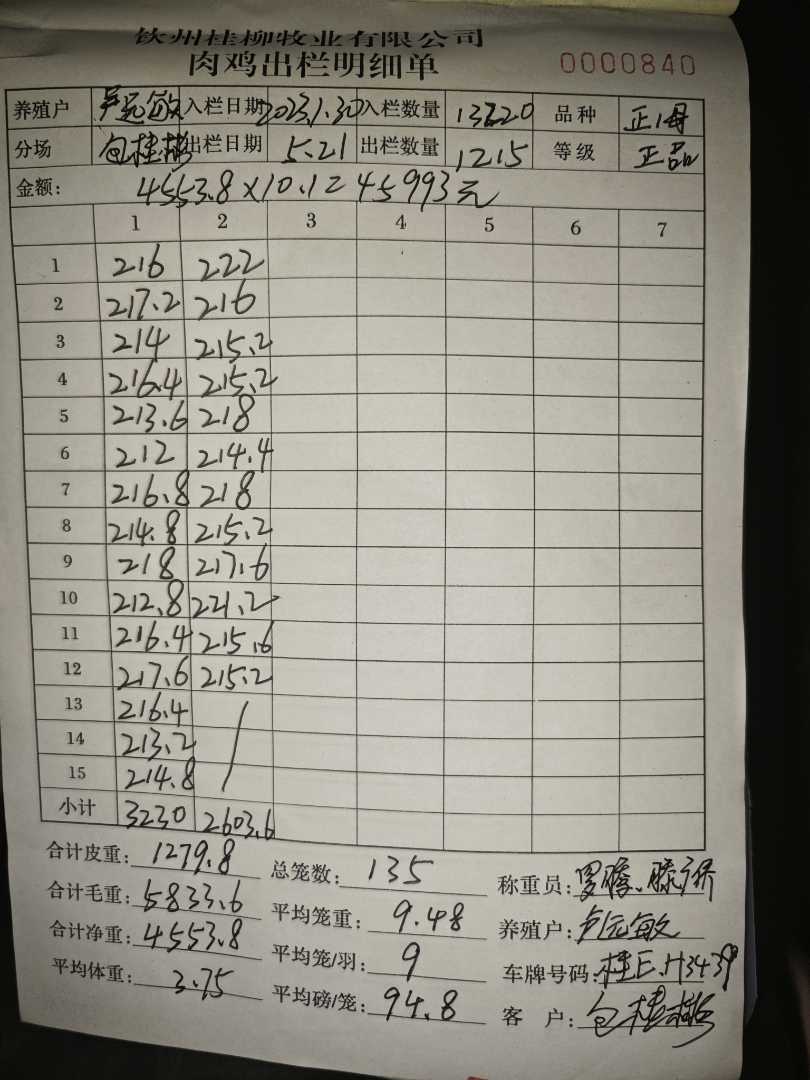 钦州桂柳牧业有限公司
肉鸡出栏明细单 0000840
养殖户 卢远敏 入栏日期 2023.1.30 入栏数量 13220 品种 正母
分场 包桂彬 出栏日期 5.21 出栏数量 1215 等级 正品
金额: 4553.8×10.1=45993元
1 2 3 4 5 6 7
1 216 222
2 217.2 216
3 214 215.2
4 216.4 215.2
5 213.6 218
6 212 214.4
7 216.8 218
8 214.8 215.2
9 218 217.6
10 212.8 221.2
11 216.4 215.6
12 217.6 215.2
13 216.4
14 213.2
15 214.8
小计 3230 2603.6
合计皮重: 1279.8 总笼数: 135 称重员:
合计毛重: 5833.6 平均笼重: 9.48 养殖户: 卢远敏
合计净重: 4553.8 平均笼/羽: 9 车牌号码: 桂E.H3439
平均体重: 3.75 平均磅/笼: 94.8 客户: 包桂彬